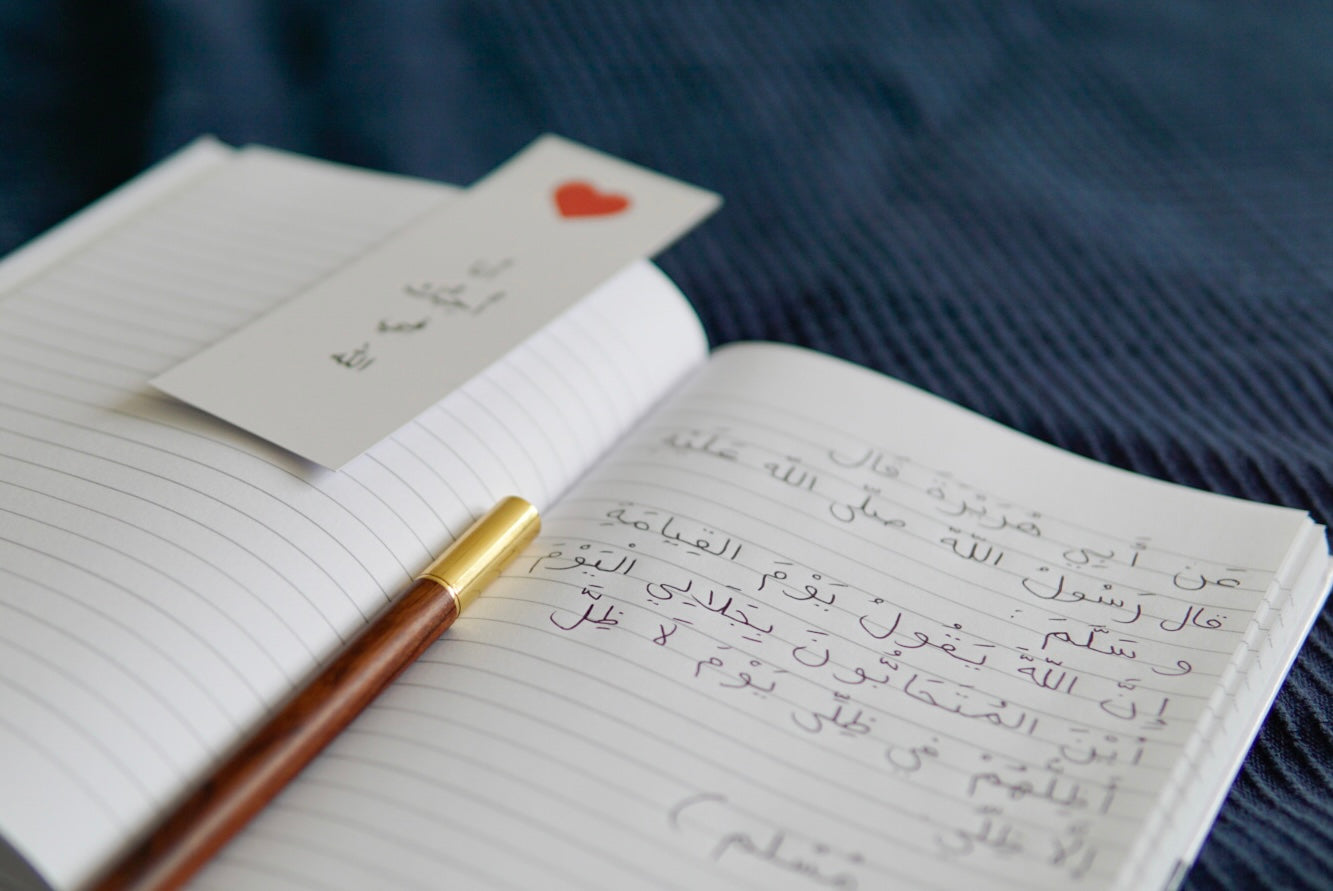 عَن أَبِي هُرَيْرَةَ قَالَ
قال رَسُولُ اللّهِ صلّى اللّه عَلَيْهِ
و سَلَّمَ :
إِنَّ اللّهَ يَقُولُ يَوْمَ القِيامَةِ
أَيْنَ المُتَحَابُّونَ بِجَلَالِي الْيَوْمَ
أُظِلُّهُمْ في ظِلِّي يَوْمَ لَا ظِلَّ
إِلَّا ظِلِّي
مُسْلم )
في
اللّه